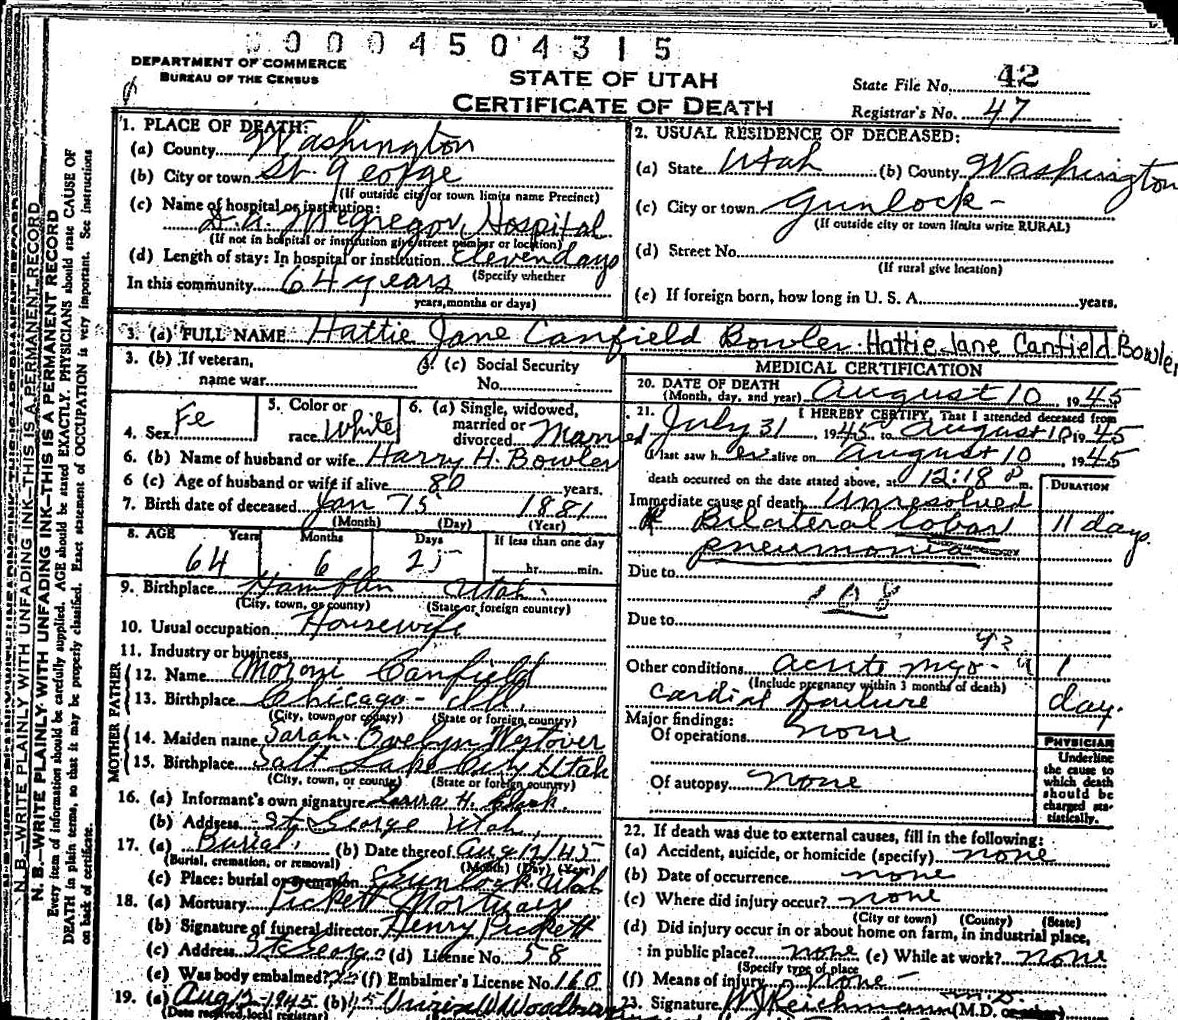 0 0 0 0 4 5 0 4 3 1 5
DEPARTMENT OF COMMERCE
BUREAU OF THE CENSUS
STATE OF UTAH
CERTIFICATE OF DEATH
State File No. 42
Registrar's No. 47
N. B.—WRITE PLAINLY WITH UNFADING INK—THIS IS A PERMANENT RECORD
N. B.—WRITE PLAINLY WITH UNFADING INK—THIS IS A PERMANENT RECORD
Every item of information should be carefully supplied. AGE should be stated EXACTLY. PHYSICIANS should state CAUSE OF
DEATH in plain terms, so that it may be properly classified. Exact statement of OCCUPATION is very important. See instructions
on back of certificate.
1. PLACE OF DEATH:
(a) County Washington
(b) City or town St. George
(If outside city or town limits name Precinct)
(c) Name of hospital or institution:
D. A. McGregor Hospital
(If not in hospital or institution give street number or location)
(d) Length of stay: In hospital or institution Eleven days
(Specify whether
In this community 64 years
years, months or days)
2. USUAL RESIDENCE OF DECEASED:
(a) State Utah (b) County Washington
(c) City or town Gunlock
(If outside city or town limits write RURAL)
(d) Street No.
(If rural give location)
(e) If foreign born, how long in U. S. A. years.
3. (a) FULL NAME Hattie Jane Canfield Bowler Hattie Jane Canfield Bowler
3. (b) If veteran,
name war
3. (c) Social Security
No.
4. Sex Fe
5. Color or
race White
6. (a) Single, widowed,
married or
divorced Married
6. (b) Name of husband or wife Harry H. Bowler
6 (c) Age of husband or wife if alive 80 years.
7. Birth date of deceased Jan 15 1881
(Month) (Day) (Year)
8. AGE Years Months Days If less than one day
64 6 25 hr. min.
9. Birthplace Hamblin Utah
(City, town, or county) (State or foreign country)
10. Usual occupation Housewife
11. Industry or business
FATHER
12. Name Moroni Canfield
13. Birthplace Chicago - Ill.
(City, town or county) (State or foreign country)
MOTHER
14. Maiden name Sarah Evelyn Westover
15. Birthplace Salt Lake City Utah
(City, town, or county) (State or foreign country)
16. (a) Informant's own signature H.
(b) Address St. George Utah
17. (a) Burial (b) Date thereof Aug 12/45
(Burial, cremation, or removal) (Month) (Day) (Year)
(c) Place: burial or cremation Gunlock Utah
18. (a) Mortuary Pickett Mortuary
(b) Signature of funeral director Henry Pickett
(c) Address St George (d) License No. 58
(e) Was body embalmed? (f) Embalmer's License No. 160
19. (a) Aug 12-1945 (b)
(Date received, local registrar)
MEDICAL CERTIFICATION
20. DATE OF DEATH
(Month, day, and year) August 10 1945
21. I HEREBY CERTIFY, That I attended deceased from
July 31 1945 to August 10 1945
I last saw her alive on August 10 1945
death occurred on the date stated above, at 12:18 P m.
DURATION
Immediate cause of death Unresolved
Bilateral lobar 11 days.
pneumonia
Due to
108
Due to
Other conditions acute myo- 1
(Include pregnancy within 3 months of death)
cardial failure day.
Major findings:
Of operations none
Of autopsy none
PHYSICIAN
Underline
the cause to
which death
should be
charged sta-
tistically.
22. If death was due to external causes, fill in the following:
(a) Accident, suicide, or homicide (specify) none
(b) Date of occurrence none
(c) Where did injury occur? none
(City or town) (County) (State)
(d) Did injury occur in or about home on farm, in industrial place,
in public place? none (e) While at work? none
(Specify type of place
(f) Means of injury none
23. Signature (M.D. or other)